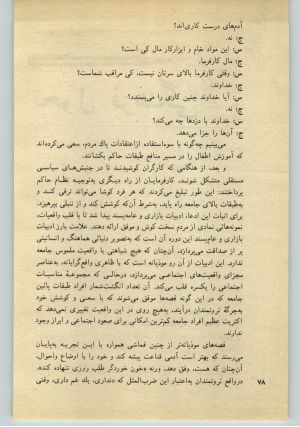 آدم‌های درست کاری‌اند؟
ج: نه.
س: این مواد خام و ابزارکار مال کی است؟
ج: مال کارفرما.
س: وقتی کارفرما بالای سرتان نیست، کی مراقب شماست؟
ج: خداوند.
س: آیا خداوند چنین کاری را می‌پسندد؟
ج: نه.
س: خداوند با دزدها چه می‌کند؟
ج: آن‌ها را جزا می‌دهد.
می‌بینیم چه‌گونه با سوءاستفاده ازاعتقادات پاك مردم، سعی می‌کرده‌اند
که آموزش اطفال را در مسیر منافع طبقات حاکم بکشانند.
و بعد، از هنگامی که کارگران کوشیدند تا در جنبش‌های سیاسی
مستقلی متشکل شوند، کارفرمایان از راه دیگری به‌توجیه نظام حاکم
پرداختند: این طور تبلیغ می‌کردند که هر فرد کوشا می‌تواند ترقی کند و
به‌طبقات بالای جامعه راه یابد، به‌شرط آن‌که کوشش کند و از تنبلی بپرهیزد.
برای اثبات این ادعا، ادبیات بازاری و عامه‌پسند پیدا شد تا با قلب واقعیات،
نمونه‌هائی نمادی از مردم سخت کوش و موفق ارائه دهند. علامت بارز ادبیات
بازاری و عام‌پسند این دوره آن است که به‌تصویر دنیائی هماهنگ و انسانیتی
پر از صداقت می‌پردازد، آن‌چنان که هیچ شباهتی با واقعیت ملموس جامعه
ندارد. این ادبیات از آن رو موذیانه است که با ظاهری واقع‌گرایانه، به‌عناصر
مجزای واقعیت‌های اجتماعی می‌پردازد، درحالی که مجموعهٔ مناسبات
اجتماعی را یکسره قلب می‌کند. آن تعداد انگشت‌شمار افراد طبقات پائین
جامعه که در این گونه قصه‌ها موفق می‌شوند که با سعی و کوشش خود
به‌جرگهٔ ثروتمندان درآیند، به‌هیچ روی در این واقعیت تغییری نمی‌دهند که
اکثریت عظیم افراد جامعه کم‌ترین امکانی برای صعود اجتماعی و ابراز وجود
ندارند.
قصه‌های موذیانه‌تر از چنین قماشی همواره با این تجربه به‌پایان
می‌رسند که بهتر است آدمی قناعت پیشه کند و خود را با اوضاع واحوال،
آن‌چنان که هست، وفق دهد، ورنه «خون خوردگر طلب روزی ننهاده کند».
درواقع ثروتمندان به‌اعتبار این ضرب‌المثل که «نداری، یك غم داری، وقتی
۷۸